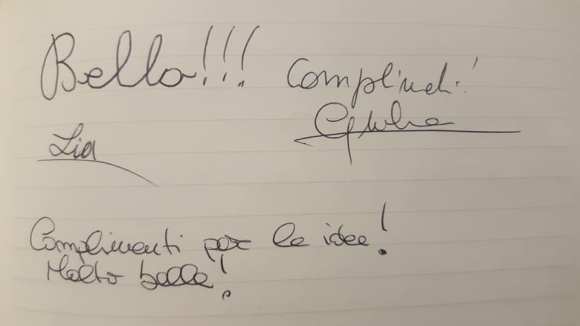 Bello!!! Complimenti!
Giulia
Lia
Complimenti per le idee!
Molto belle!